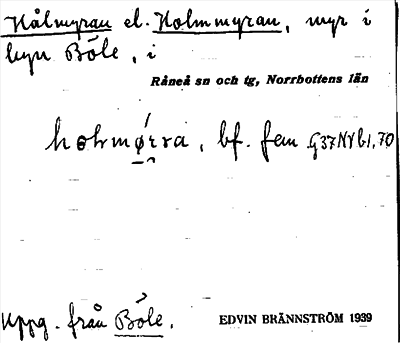 Hålmyran el. Holmmyran, myr i
byn Böle, i
Råneå sn och tg, Norrbottens län
holmørra, bf. fem G37NVb1,70
Uppg. från Böle.
EDVIN BRÄNNSTRÖM 1939